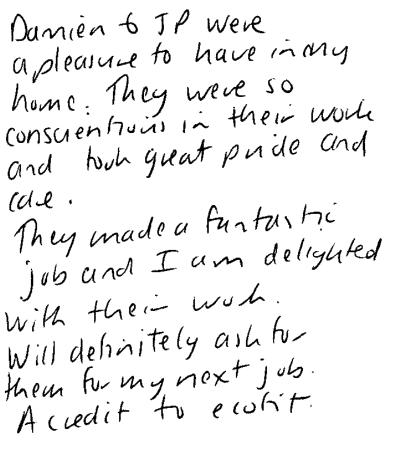 Damien & JP were
a pleasure to have in my
home. They were so
conscientious in their work
and took great pride and
care.
They made a fantastic
job and I am delighted
with their work.
Will definitely ask for
them for my next job.
A credit to ecofit.